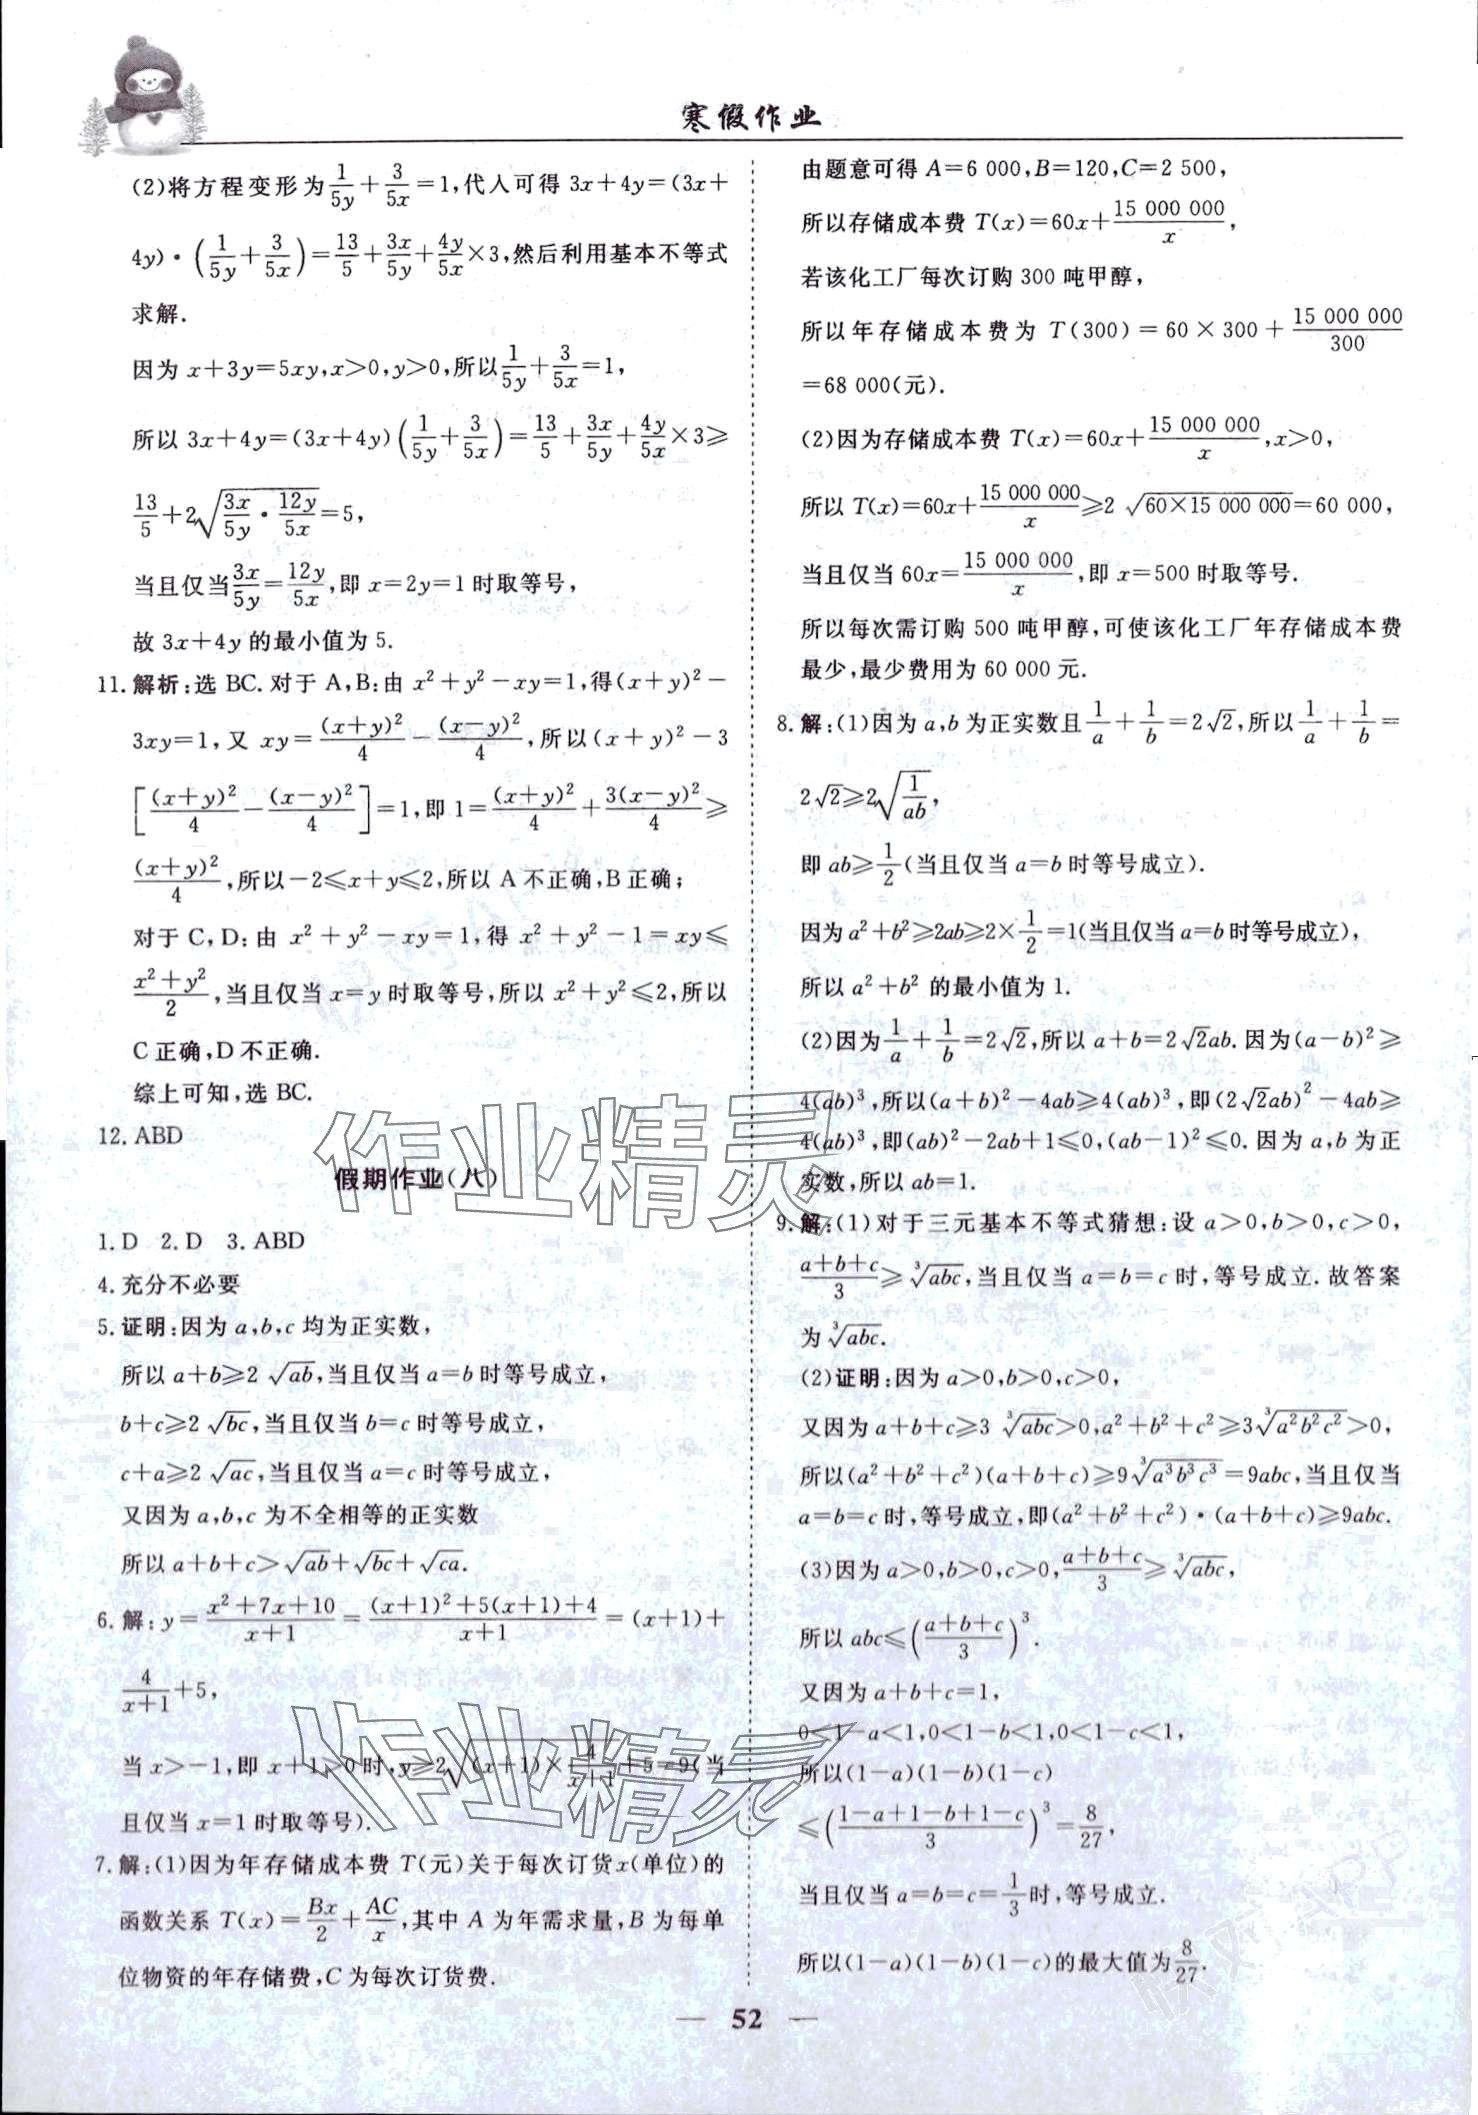 寒假作业
(2)将方程变形为1/(5y)+3/(5x)=1,代人可得 3x+4y=(3x+
4y)·(1/(5y)+3/(5x))=13/5+3x/(5y)+4y/(5x)×3,然后利用基本不等式
求解.
因为 x+3y=5xy,x>0,y>0,所以1/(5y)+3/(5x)=1,
所以 3x+4y=(3x+4y)(1/(5y)+3/(5x))=13/5+3x/(5y)+4y/(5x)×3≥
13/5+2√(3x/(5y)·12y/(5x))=5,
当且仅当3x/(5y)=12y/(5x),即 x=2y=1 时取等号,
故 3x+4y 的最小值为 5.
11. 解析:选 BC. 对于 A,B:由 x²+y²-xy=1,得(x+y)²-
3xy=1,又 xy=(x+y)²/4-(x-y)²/4,所以(x+y)²-3
[(x+y)²/4-(x-y)²/4]=1,即 1=(x+y)²/4+3(x-y)²/4≥
(x+y)²/4,所以-2≤x+y≤2,所以 A 不正确,B 正确;
对于 C,D:由 x²+y²-xy=1,得 x²+y²-1=xy≤
(x²+y²)/2,当且仅当 x=y 时取等号,所以 x²+y²≤2,所以
C 正确,D 不正确.
综上可知,选 BC.
12. ABD
假期作业(八)
1. D 2. D 3. ABD
4. 充分不必要
5. 证明:因为 a,b,c 均为正实数,
所以 a+b≥2√(ab),当且仅当 a=b 时等号成立,
b+c≥2√(bc),当且仅当 b=c 时等号成立,
c+a≥2√(ac),当且仅当 a=c 时等号成立,
又因为 a,b,c 为不全相等的正实数
所以 a+b+c>√(ab)+√(bc)+√(ca).
6. 解:y=(x²+7x+10)/(x+1)=((x+1)²+5(x+1)+4)/(x+1)=(x+1)+
4/(x+1)+5,
当 x>-1,即 x+1>0 时,y≥2√((x+1)×4/(x+1))+5=9(当
且仅当 x=1 时取等号).
7. 解:(1)因为年存储成本费 T(元)关于每次订货 x(单位)的
函数关系 T(x)=Bx/2+AC/x,其中 A 为年需求量,B 为每单
位物资的年存储费,C 为每次订货费.
由题意可得 A=6 000,B=120,C=2 500,
所以存储成本费 T(x)=60x+15 000 000/x,
若该化工厂每次订购 300 吨甲醇,
所以年存储成本费为 T(300)=60×300+15 000 000/300
=68 000(元).
(2)因为存储成本费 T(x)=60x+15 000 000/x,x>0,
所以 T(x)=60x+15 000 000/x≥2√(60×15 000 000)=60 000,
当且仅当 60x=15 000 000/x,即 x=500 时取等号.
所以每次需订购 500 吨甲醇,可使该化工厂年存储成本费
最少,最少费用为 60 000 元.
8. 解:(1)因为 a,b 为正实数且1/a+1/b=2√2,所以1/a+1/b=
2√2≥2√(1/(ab)),
即 ab≥1/2(当且仅当 a=b 时等号成立).
因为 a²+b²≥2ab≥2×1/2=1(当且仅当 a=b 时等号成立),
所以 a²+b² 的最小值为 1.
(2)因为1/a+1/b=2√2,所以 a+b=2√2ab. 因为(a-b)²≥
4(ab)³,所以(a+b)²-4ab≥4(ab)³,即(2√2ab)²-4ab≥
4(ab)³,即(ab)²-2ab+1≤0,(ab-1)²≤0. 因为 a,b 为正
实数,所以 ab=1.
9. 解:(1)对于三元基本不等式猜想:设 a>0,b>0,c>0,
(a+b+c)/3≥³√(abc),当且仅当 a=b=c 时,等号成立. 故答案
为³√(abc).
(2)证明:因为 a>0,b>0,c>0,
又因为 a+b+c≥3 ³√(abc)>0,a²+b²+c²≥3³√(a²b²c²)>0,
所以(a²+b²+c²)(a+b+c)≥9³√(a³b³c³)=9abc,当且仅当
a=b=c 时,等号成立,即(a²+b²+c²)·(a+b+c)≥9abc.
(3)因为 a>0,b>0,c>0,(a+b+c)/3≥³√(abc),
所以 abc≤((a+b+c)/3)³.
又因为 a+b+c=1,
0<1-a<1,0<1-b<1,0<1-c<1,
所以(1-a)(1-b)(1-c)
≤((1-a+1-b+1-c)/3)³=8/27,
当且仅当 a=b=c=1/3时,等号成立.
所以(1-a)(1-b)(1-c)的最大值为8/27.
— 52 —
作业精灵
作业精灵